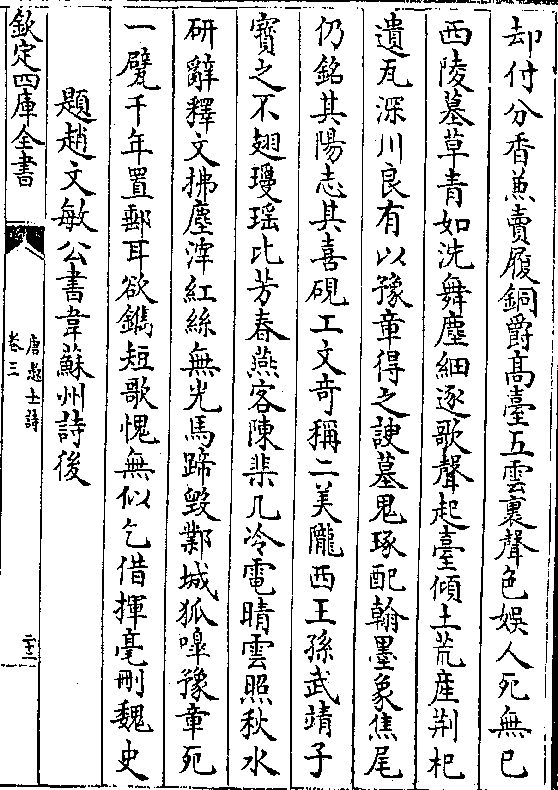 却付分香兼賣履銅爵髙臺五雲裏聲色娯人死無已
西陵墓草青如洗舞塵細逐歌聲起臺傾土荒産荆杞
遺瓦深川良有以豫章得之諛墓鬼琢配翰墨象焦尾
仍銘其陽志其喜硯工文竒稱二美隴西王孫武靖子
寳之不翅瓊瑶比芳春燕客陳棐几冷電晴雲照秋水
研辭釋文拂塵滓紅絲無光馬蹄毁鄴城狐嘷豫章死
一甓千年置郵耳欲鐫短歌愧無似乞借揮毫刪魏史
題趙文敏公書韋蘇州詩後
欽定四庫全書
唐愚士詩
卷三